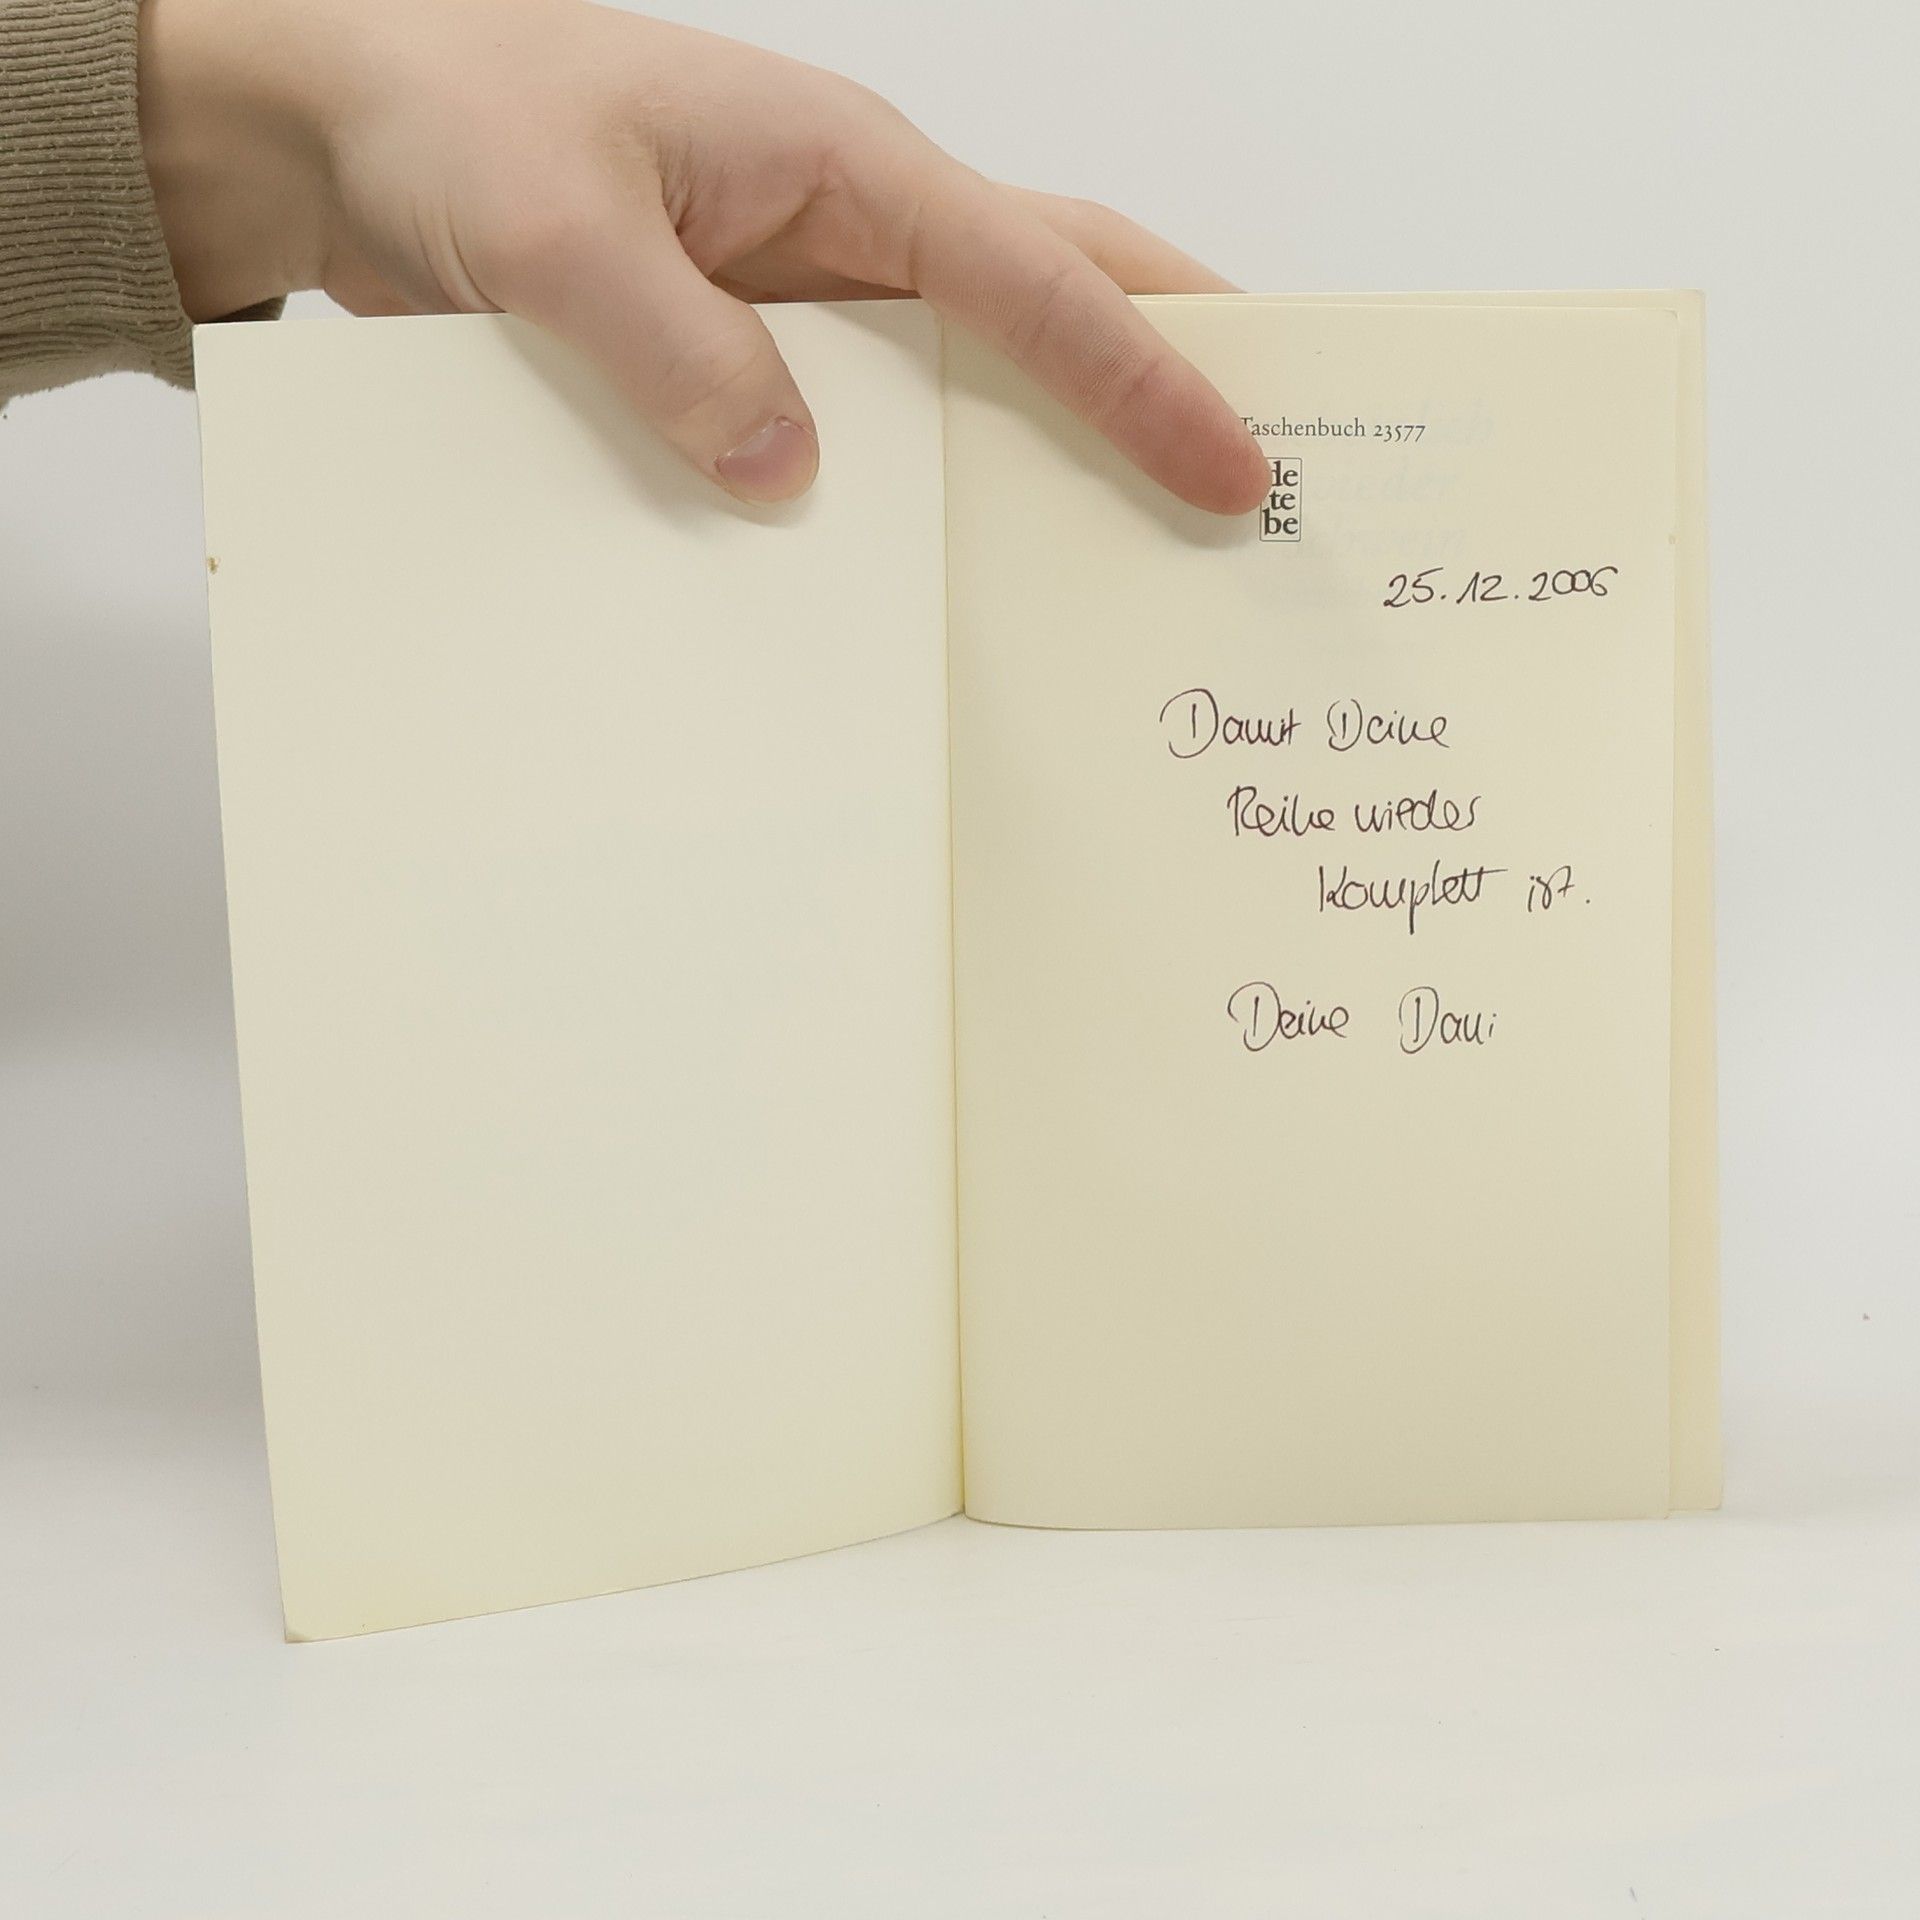 Taschenbuch 23577
de
te
be
25.12.2006
Damit Deine
Reihe wieder
Komplett ist.
Deine Dani